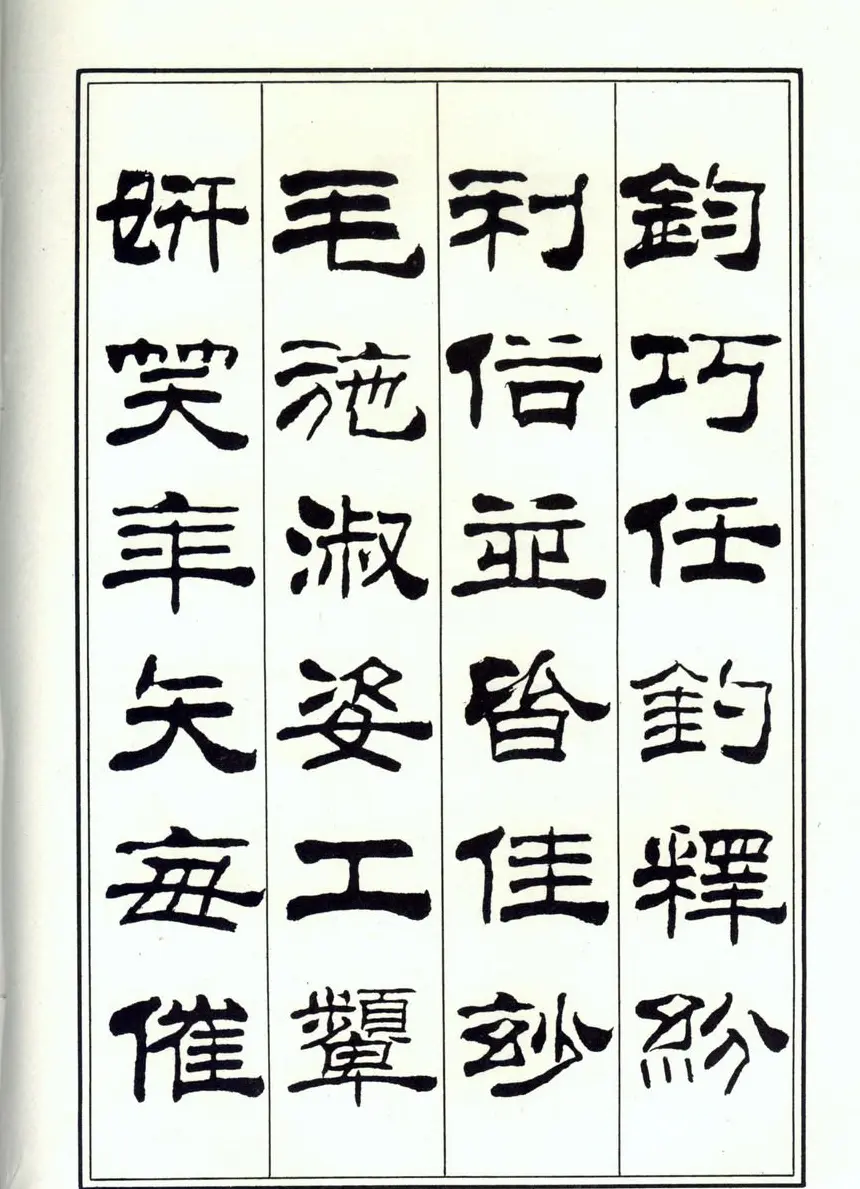 鈞巧任釣釋紛
利俗並皆佳妙
毛施淑姿工顰
妍笑年矢每催